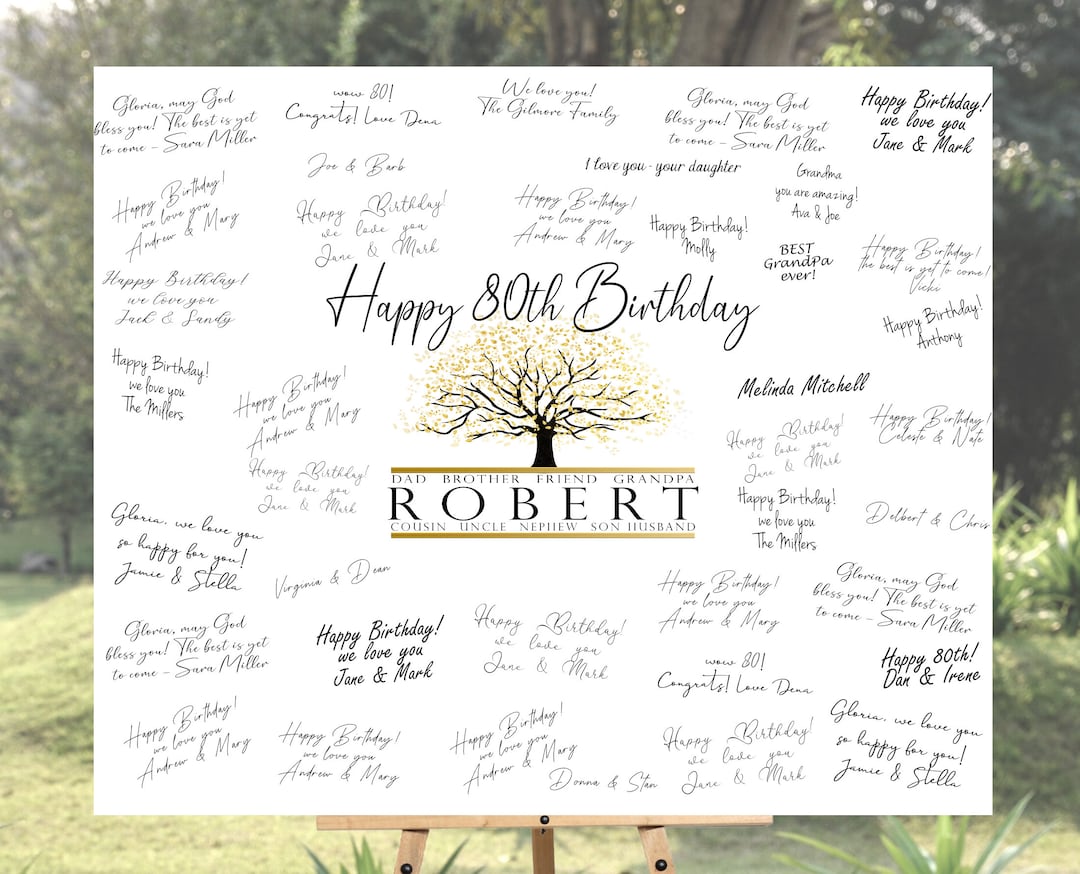 Gloria, may God
bless you! The best is yet
to come - Sara Miller
wow 80!
Congrats! Love Dena
We love you!
The Gilmore Family
Gloria, may God
bless you! The best is yet
to come - Sara Miller
Happy Birthday!
we love you
Jane & Mark
Joe & Barb
I love you - your daughter
Grandma
you are amazing!
Ava & Joe
Happy Birthday!
we love you
Andrew & Mary
Happy Birthday!
we love you
Jane & Mark
Happy Birthday!
we love you
Andrew & Mary
Happy Birthday!
Molly
BEST
GrandPa
ever!
Happy Birthday!
the best is yet to come!
Vicki
Happy Birthday!
we love you
Jack & Sandy
Happy 80th Birthday
Happy Birthday!
Anthony
Happy Birthday!
we love you
The Millers
Happy Birthday!
we love you
Andrew & Mary
Melinda Mitchell
Happy Birthday!
we love you
Jane & Mark
Happy Birthday!
Celeste & Nate
Happy Birthday!
we love you
Jane & Mark
DAD BROTHER FRIEND GRANDPA
ROBERT
COUSIN UNCLE NEPHEW SON HUSBAND
Happy Birthday!
we love you
The Millers
Delbert & Chris
Gloria, we love you
so happy for you!
Jamie & Stella
Virginia & Dean
Happy Birthday!
we love you
Andrew & Mary
Gloria, may God
bless you! The best is yet
to come - Sara Miller
Gloria, may God
bless you! The best is yet
to come - Sara Miller
Happy Birthday!
we love you
Jane & Mark
Happy Birthday!
we love you
Jane & Mark
wow 80!
Congrats! Love Dena
Happy 80th!
Dan & Irene
Happy Birthday!
we love you
Andrew & Mary
Happy Birthday!
we love you
Andrew & Mary
Happy Birthday!
we love you
Andrew & Mary
Donna & Stan
Happy Birthday!
we love you
Jane & Mark
Gloria, we love you
so happy for you!
Jamie & Stella